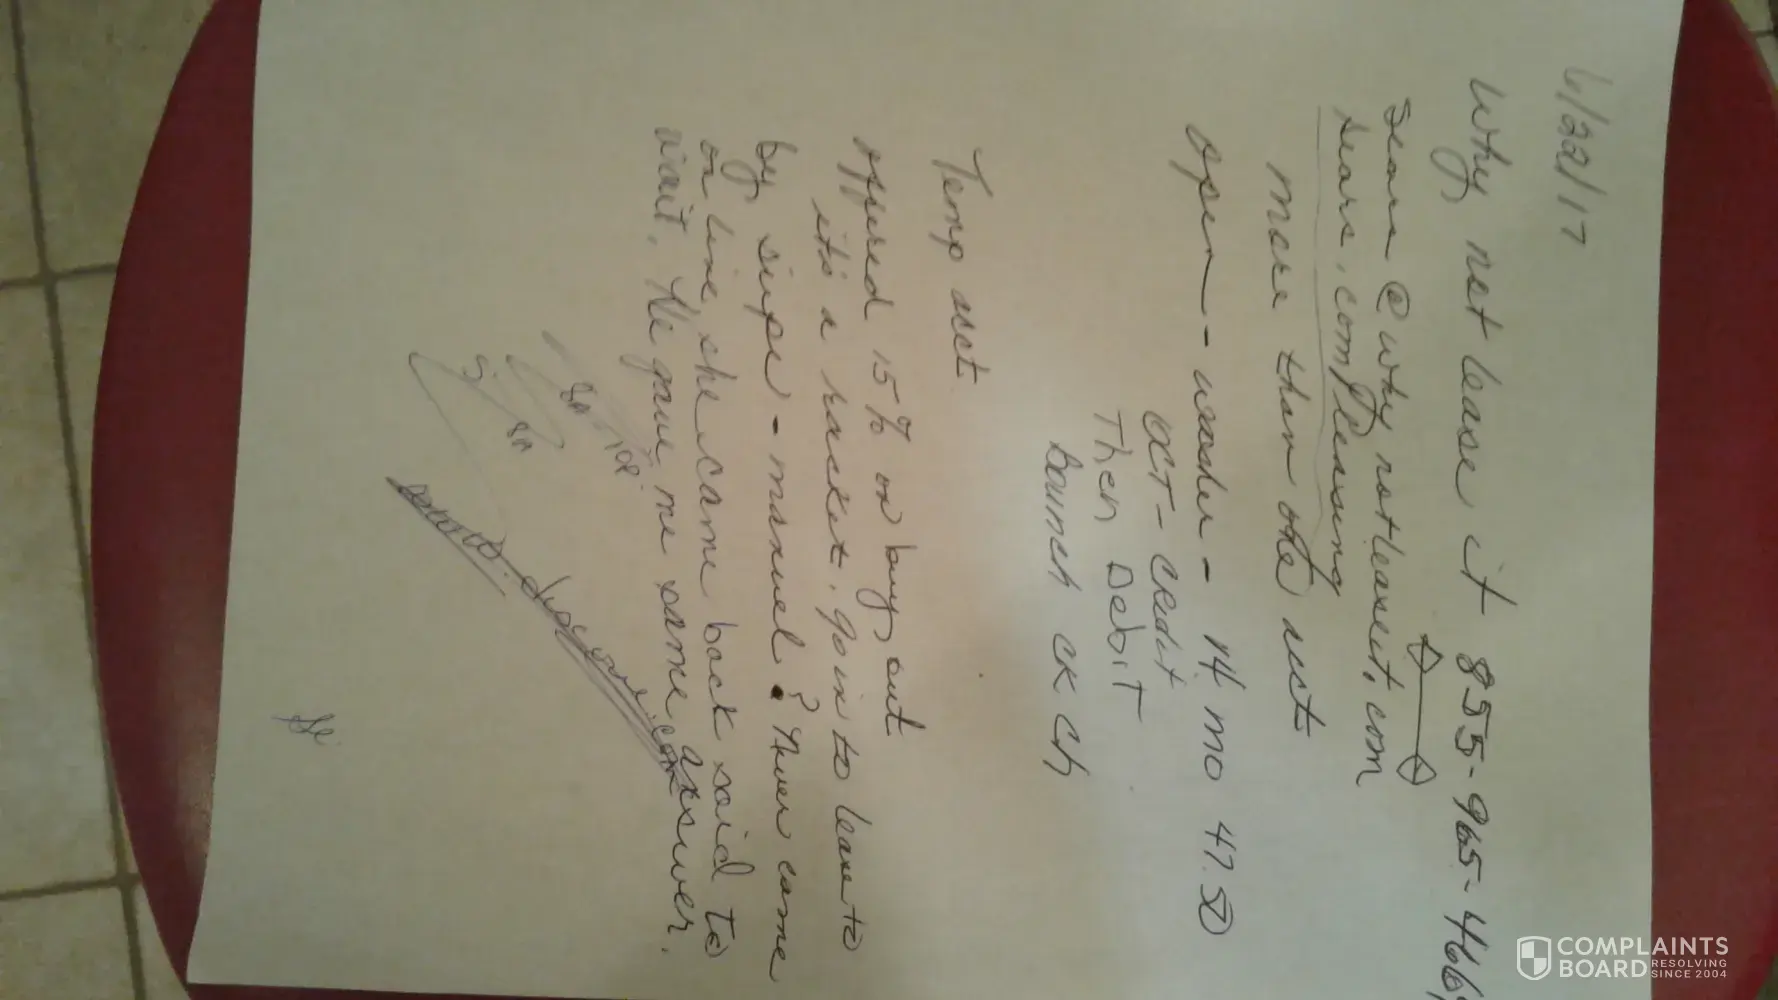 6/22/17
Why not lease it 855-965-466
Sears @ whynotleaseit.com
sears.com/leasing
more than one acct
open - washer - 14 mo 47.50
OCT - credit
Then Debit
Bounch ck Ch
Temp acct
offered 15% on buy out
its a racket. goin to lease to
by supr - manuel? Then came
on line, she came back said to
wait. He gave me same answer.
COMPLAINTS
BOARD RESOLVING
SINCE 2004